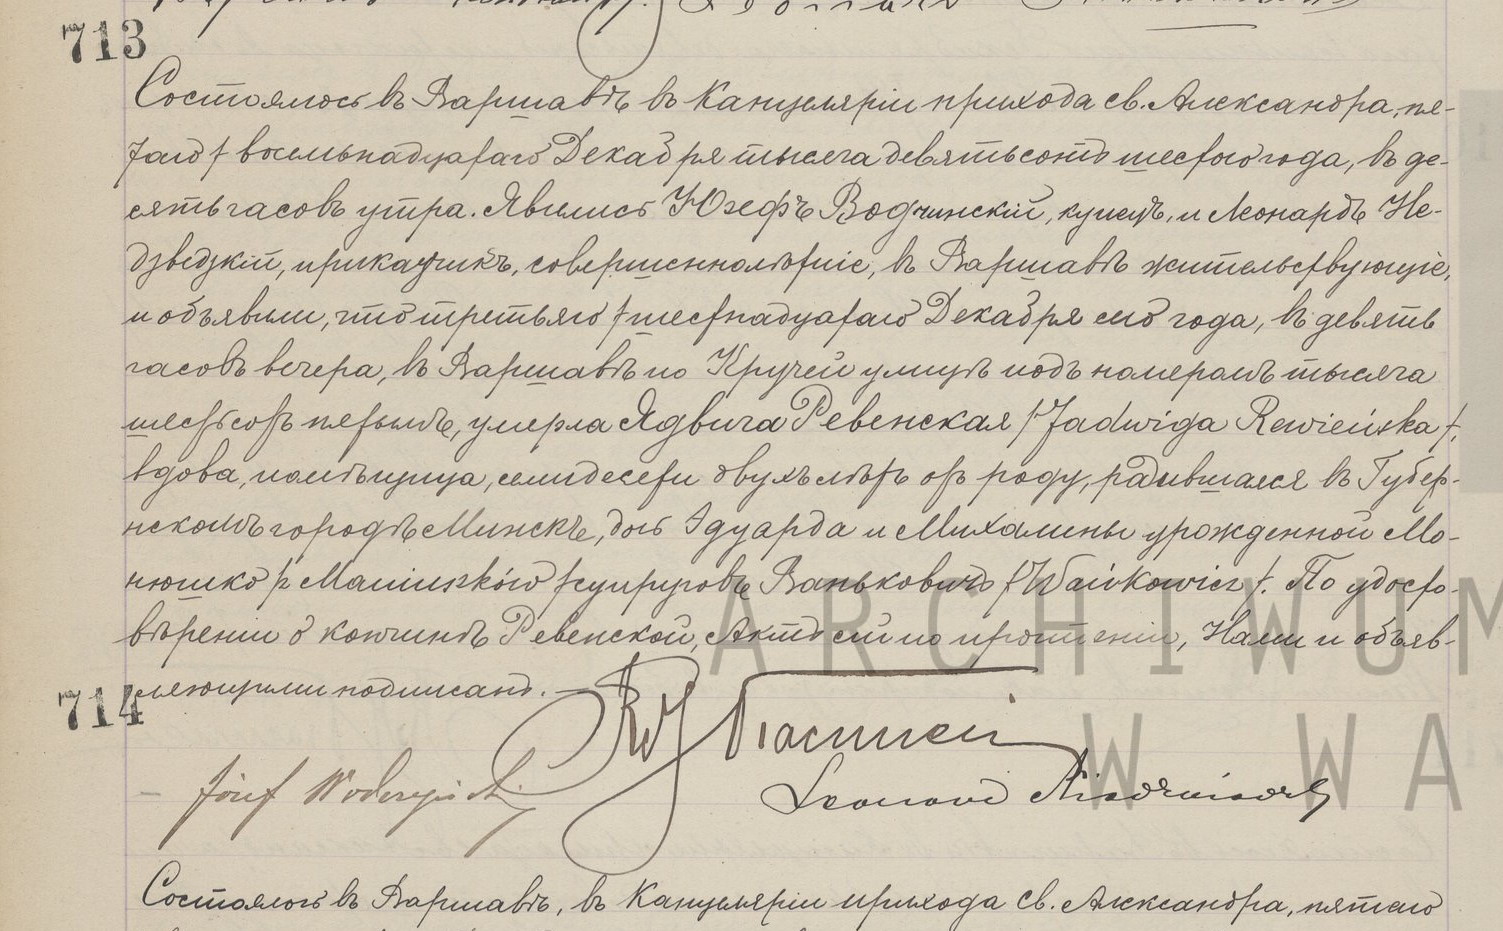 713
Состоялось въ Варшавѣ въ Канцеляріи прихода св. Александра, пя-
таго / восемьнадцатаго Декабря тысяча девятьсотъ шестого года, въ де-
сять часовъ утра. Явились Юзефъ Водчинскій, купецъ, и Леонардъ Не-
дзведзкій, прикащикъ, совершеннолѣтніе, въ Варшавѣ жительствующіе,
и объявили, что третьяго / шестнадцатаго Декабря сего года, въ девять
часовъ вечера, въ Варшавѣ по Кручей улицѣ подъ номеромъ тысяча
шестьсотъ пятымъ, умерла Ядвига Ревенская /Jadwiga Rewieńska/,
вдова, помѣщица, семидесяти двухъ лѣтъ отъ роду, родившаяся въ Губер-
нскомъ городѣ Минскѣ, дочь Эдуарда и Михалины урожденной Мо-
нюшко /z Moniuszków/ супруговъ Ваньковичъ /Wańkowicz/. По удосто-
вѣреніи о кончинѣ Ревенской, Актъ сей по прочтеніи, Нами и объяв-
ляющими подписанъ.
714
Józef Wodczyński
Leonard Niedźwiedzki
Состоялось въ Варшавѣ, въ Канцеляріи прихода св. Александра, пятаго
ARCHIWUM
W WA